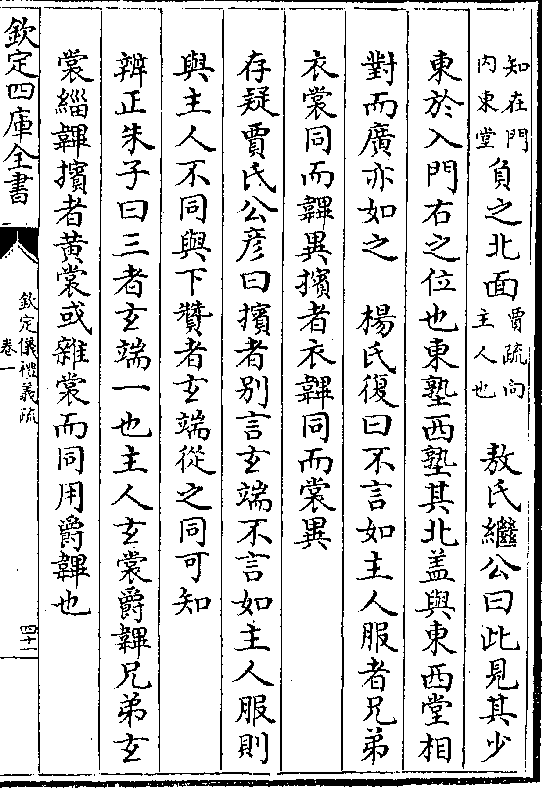 知在門
内東堂
負之北面
賈疏向
主人也
敖氏繼公曰此見其少
東於入門右之位也東塾西塾其北盖與東西堂相
對而廣亦如之　楊氏復曰不言如主人服者兄弟
衣裳同而韠異擯者衣韠同而裳異
存疑賈氏公彦曰擯者别言玄端不言如主人服則
與主人不同與下贊者玄端從之同可知
辨正朱子曰三者玄端一也主人玄裳爵韠兄弟玄
裳緇韠擯者黄裳或雜裳而同用爵韠也
欽定四庫全書
欽定儀禮義疏
卷一
四十二